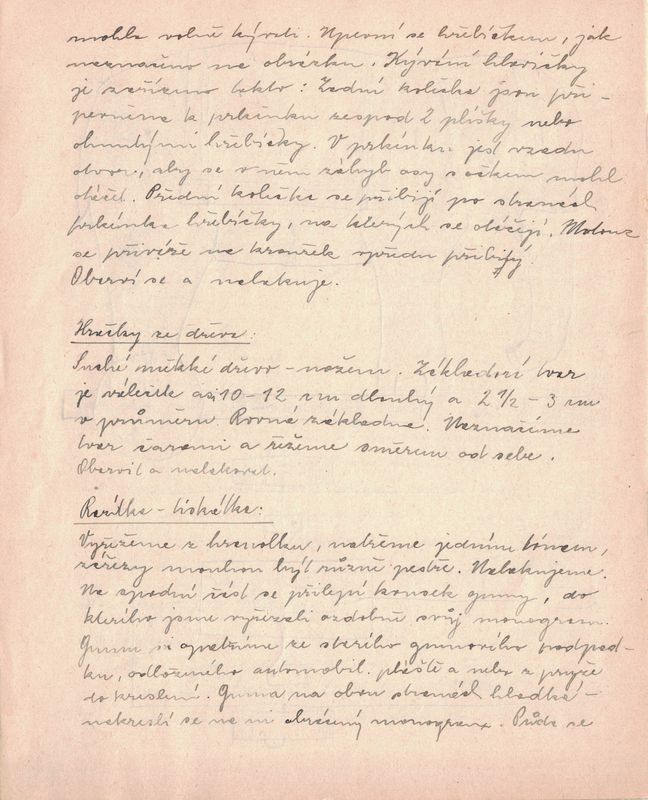 mohla volně kývati. Upevní se hřebíčkem, jak
naznačeno na obrázku. Kývání hlavičky
je zařízeno takto: Zadní kolečka jsou při-
pevněna k prkénku zespod 2 plíšky nebo
ohnutými hřebíčky. V prkénku jest vzadu
otvor, aby se v něm záhyb osy s očkem mohl
otáčet. Přední kolečka se přibijí po stranách
prkénka hřebíčky, na kterých se otáčejí. Motouz
se přiváže na kroužek vpředu přibitý.
Obarví se a nalakuje.
Hračky ze dřeva:
Suché měkké dřevo - nožem. Základní tvar
je váleček asi 10-12 cm dlouhý a 2 1/2 - 3 cm
v průměru. Rovná základna. Naznačíme
tvar čarami a řežeme směrem od sebe.
Obarvit a nalakovat.
Razítka - tiskátka:
Vyřežeme z hranolku, natřeme jedním tónem,
zářezy mouhou být různě pestré. Nalakujeme.
Na spodní část se přilepí kousek gumy, do
kterého jsme vyřezali ozdobně svůj monogram.
Gumu si opatříme ze starého gumového podpad-
ku, odloženého automobil. pláště a nebo z pryže
do kreslení. Guma na obou stranách hladká -
nakreslí se na ni obrácený monogram. Půda se